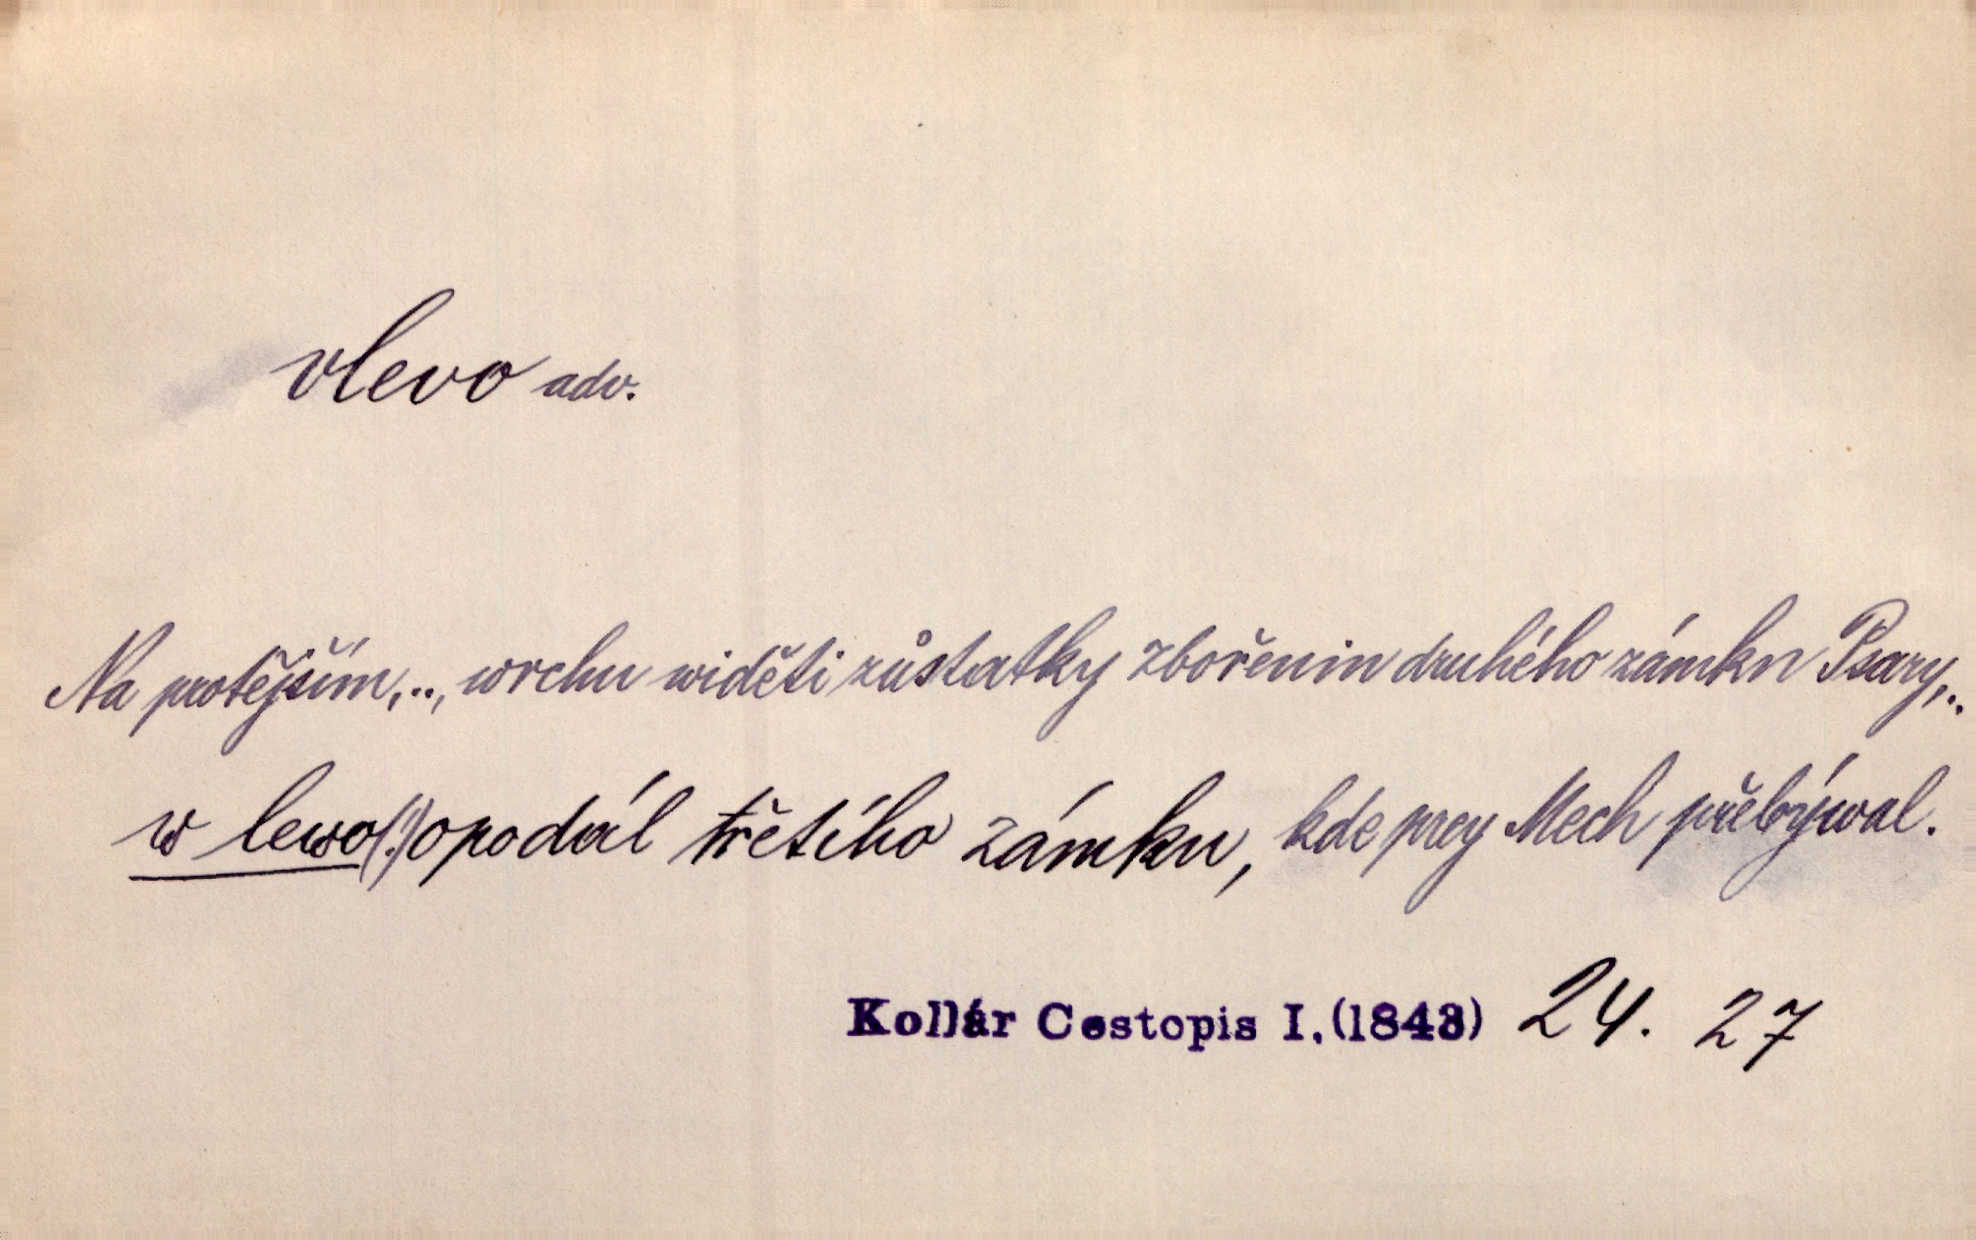 vlevo adv.
Na protějším,.., wrchu widěti zůstatky zbořenin druhého zámku Psary,..
w lewo(!) opodál třetího zámku, kde prey Mech přebýwal.
Kollár Cestopis I.(1843) 24. 27